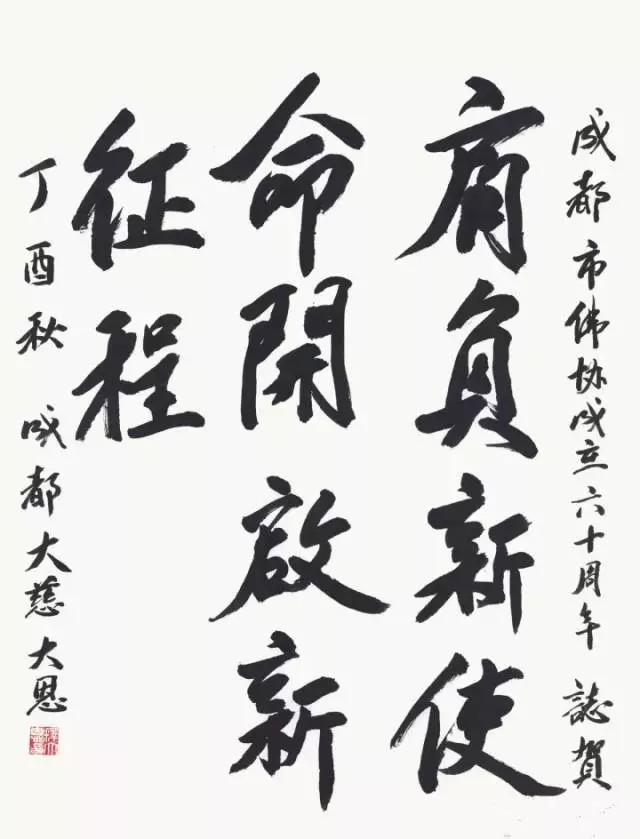 成都市佛协成立六十周年 誌賀
肩負新使
命開啟新
征程
丁酉秋 成都大慈大恩